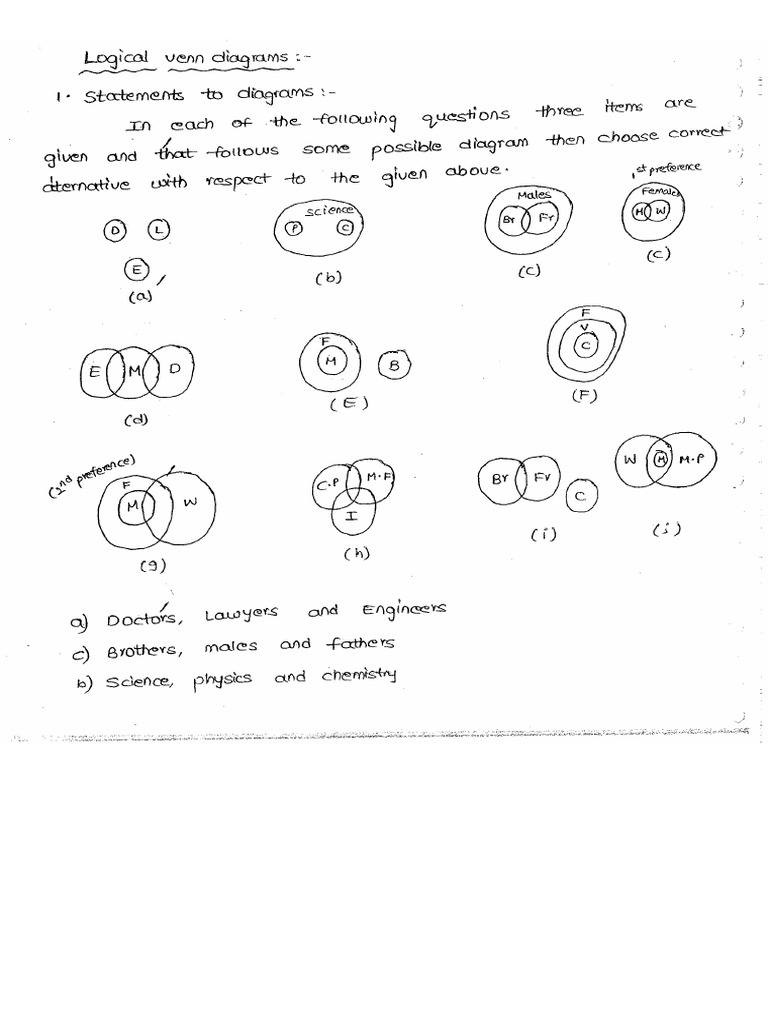 Logical venn diagrams :-
1. Statements to diagrams :-
In each of the following questions three items are
given and that follows some possible diagram then choose correct
alternative with respect to the given above.
1st preference
D L
E
(a)
Science
P C
(b)
Males
Br Fr
(c)
Females
M W
(c)
E M D
(d)
F
M
B
(E)
F
V
C
(F)
(2nd preference)
F
M W
(g)
C.P M.F
I
(h)
Br Fr
C
(i)
W M M.P
(j)
a) Doctors, Lawyers and Engineers
c) Brothers, males and fathers
b) Science, physics and chemistry